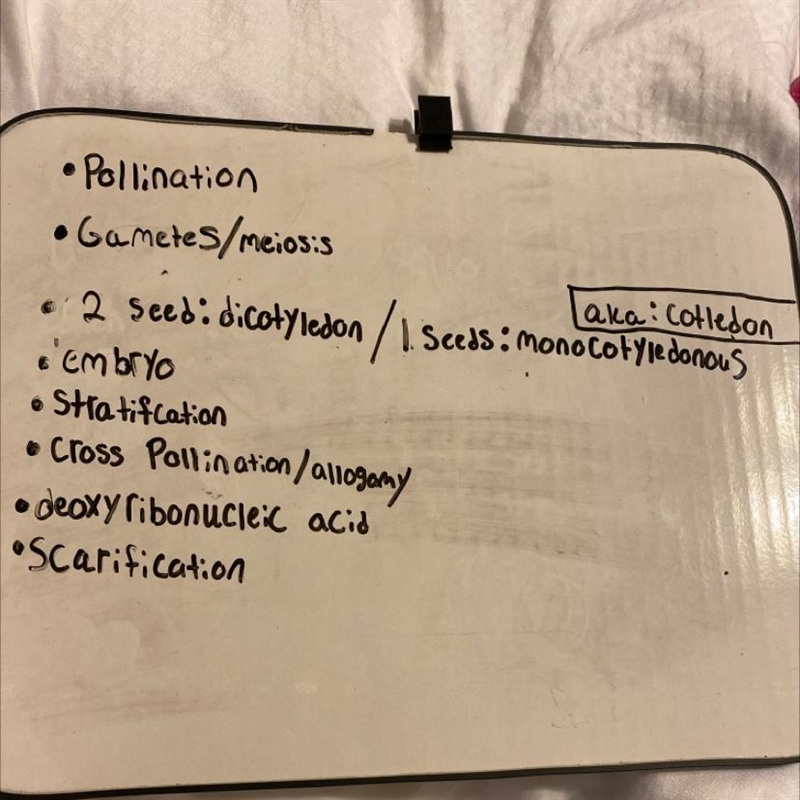 • Pollination
• Gametes/meiosis
• 2 seed: dicotyledon / 1 seeds: monocotyledonous
aka: cotledon
• embryo
• stratifcation
• cross Pollination/allogamy
• deoxyribonucleic acid
• Scarification